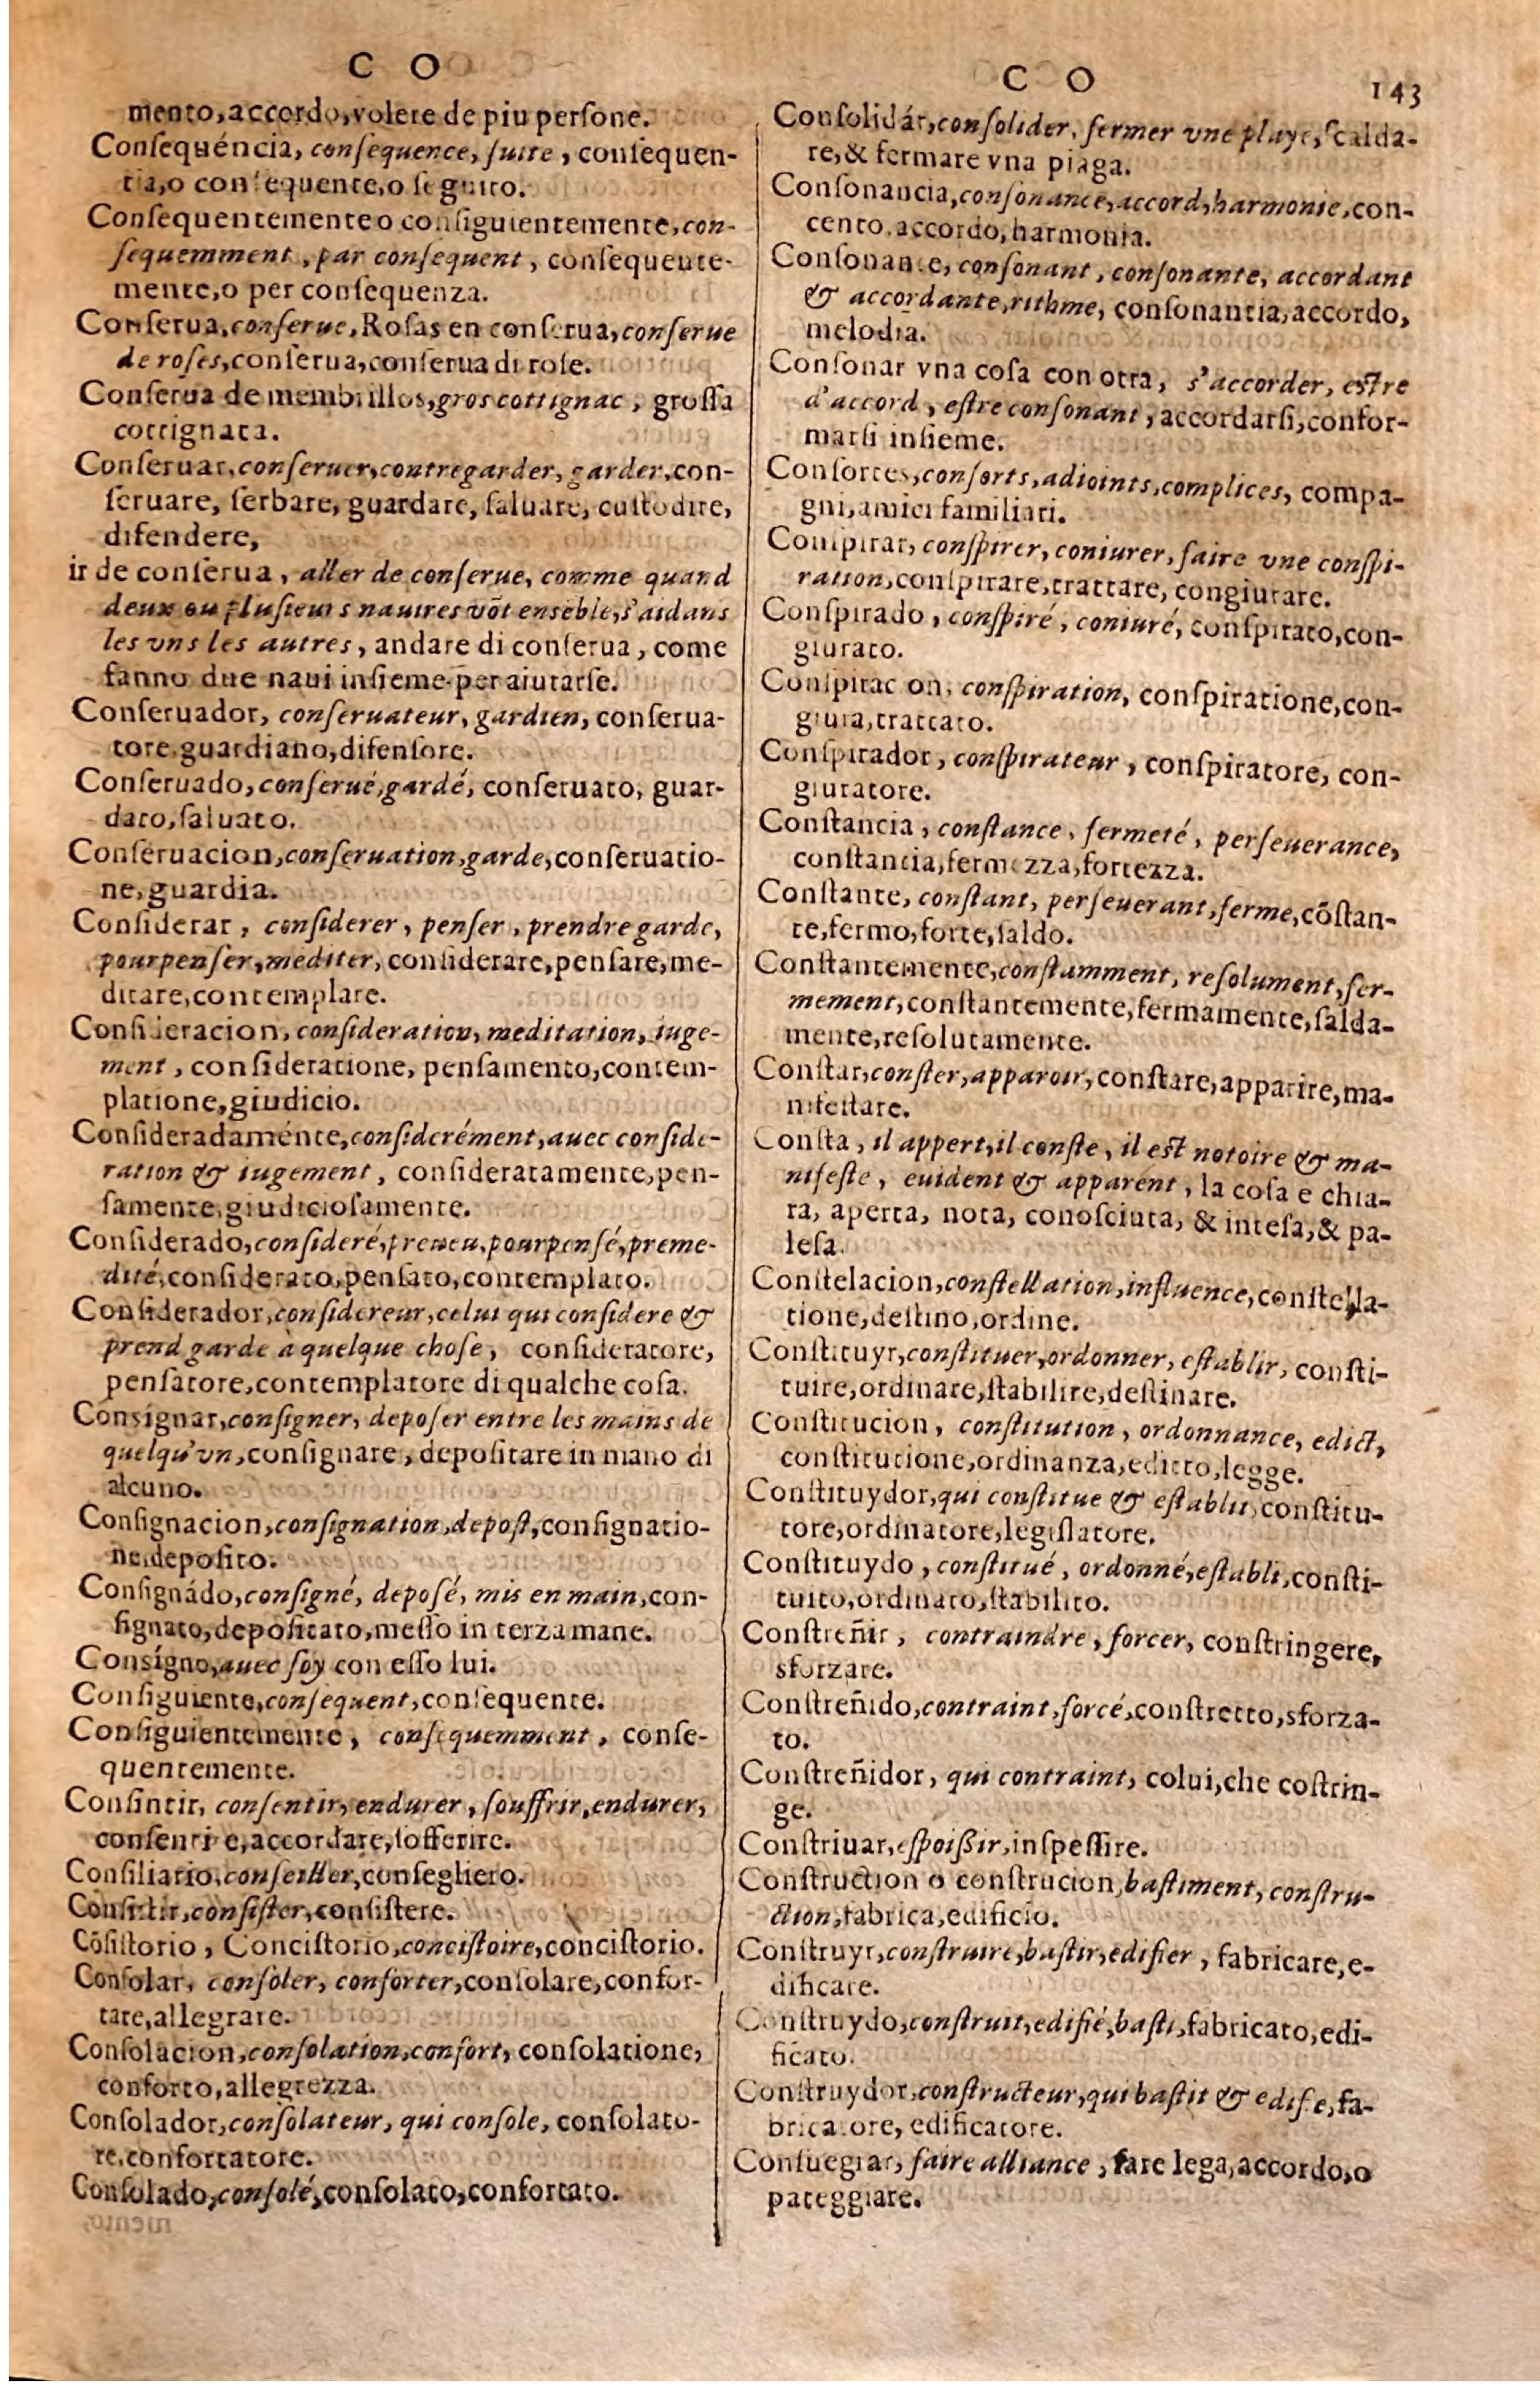 C O
mento,accordo,volere de piu perſone.
Conſequéncia, conſequence, ſuite, conſequen-
tia,o conſequente,o ſeguito.
Conſequentemente o conſiguientemente,con-
ſequemment, par conſequent, conſequente-
mente,o per conſequenza.
Conſerua,conſerue,Roſas en conſerua,conſerue
de roſes,conſerua,conſerua di roſe.
Conſerua de membrillos,gros cottignac, groſſa
cottignata.
Conſeruar,conſeruer,contregarder, garder,con-
ſeruare, ſerbare, guardare, ſaluare, cuſtodire,
difendere,
ir de conſerua, aller de conſerue, comme quand
deux ou pluſieurs nauires võt enseble,s'aidans
les vns les autres, andare di conſerua, come
fanno due naui inſieme per aiutarſe.
Conſeruador, conſeruateur, gardien, conſerua-
tore guardiano,difenſore.
Conſeruado,conſerué,gardé, conſeruato, guar-
dato,ſaluato.
Conſeruacion,conſeruation,garde,conſeruatio-
ne,guardia.
Conſiderar, conſiderer, penſer, prendre garde,
pourpenſer,mediter, conſiderare,penſare,me-
ditare,contemplare.
Conſideracion, conſideration, meditation, iuge-
ment, conſideratione, penſamento,contem-
platione,giudicio.
Conſideradaménte,conſiderément,auec conſide-
ration & iugement, conſideratamente,pen-
ſamente,giudicioſamente.
Conſiderado,conſideré,preueu,pourpenſé,preme-
dité,conſiderato,penſato,contemplato.
Conſiderador,conſidereur,celui qui conſidere &
prend garde à quelque choſe, conſideratore,
penſatore,contemplatore di qualche coſa.
Conſignar,conſigner, depoſer entre les mains de
quelqu'vn,conſignare, depoſitare in mano di
alcuno.
Conſignacion,conſignation,depoſt,conſignatio-
ne,depoſito.
Conſignádo,conſigné, depoſé, mis en main,con-
ſignato,depoſitato,meſſo in terza mane.
Conſígno,auec ſoy con eſſo lui.
Conſiguiente,conſequent,conſequente.
Conſiguientemente, conſequemment, conſe-
quentemente.
Conſintir, conſentir, endurer, ſouffrir,endurer,
conſentire,accordare,ſofferire.
Conſiliario,conſeiller,conſegliero.
Conſiſtir,conſiſter,conſiſtere.
Cõſiſtorio, Conciſtorio,conciſtoire,conciſtorio.
Conſolar, conſoler, conforter,conſolare,confor-
tare,allegrare.
Conſolacion,conſolation,confort, conſolatione,
conforto,allegrezza.
Conſolador,conſolateur, qui conſole, conſolato-
re,confortatore.
Conſolado,conſolé,conſolato,confortato.
C O 143
Conſolidár,conſolider, fermer vne playe,ſcalda-
re,& fermare vna piaga.
Conſonancia,conſonance,accord,harmonie,con-
cento,accordo,harmonia.
Conſonante, conſonant, conſonante, accordant
& accordante,rithme, conſonantia,accordo,
melodia.
Conſonar vna coſa con otra, s'accorder, eſtre
d'accord, eſtre conſonant, accordarſi,confor-
marſi inſieme.
Conſortes,conſorts,adioints,complices, compa-
gni,amici familiari.
Conſpirar, conſpirer, coniurer, faire vne conſpi-
ration,conſpirare,trattare, congiurare.
Conſpirado, conſpiré, coniuré, conſpirato,con-
giurato.
Conſpiracion, conſpiration, conſpiratione,con-
giura,trattato.
Conſpirador, conſpirateur, conſpiratore, con-
giuratore.
Conſtancia, conſtance, fermeté, perſeuerance,
conſtantia,fermezza,fortezza.
Conſtante, conſtant, perſeuerant,ferme,cõſtan-
te,fermo,forte,ſaldo.
Conſtantemente,conſtamment, reſolument,fer-
mement,conſtantemente,fermamente,ſalda-
mente,reſolutamente.
Conſtar,conſter,apparoir,conſtare,apparire,ma-
nifeſtare.
Conſta, il appert,il conſte, il eſt notoire & ma-
nifeſte, euident & apparent, la coſa e chia-
ra, aperta, nota, conoſciuta, & inteſa,& pa-
leſa.
Conſtelacion,conſtellation,influence,conſtella-
tione,deſtino,ordine.
Conſtituyr,conſtituer,ordonner, eſtablir, conſti-
tuire,ordinare,ſtabilire,deſtinare.
Conſtitucion, conſtitution, ordonnance, edict,
conſtitutione,ordinanza,editto,legge.
Conſtituydor,qui conſtitue & eſtablit,conſtitu-
tore,ordinatore,legiſlatore.
Conſtituydo, conſtitué, ordonné,eſtabli,conſti-
tuito,ordinato,ſtabilito.
Conſtreñir, contraindre, forcer, conſtringere,
sforzare.
Conſtreñido,contraint,forcé,conſtretto,sforza-
to.
Conſtreñidor, qui contraint, colui,che coſtrin-
ge.
Conſtriuar,eſpoißir,inſpeſſire.
Conſtruction o conſtrucion,baſtiment, conſtru-
ction,fabrica,edificio.
Conſtruyr,conſtruire,baſtir,edifier, fabricare,e-
dificare.
Conſtruydo,conſtruit,edifié,baſti,fabricato,edi-
ficato.
Conſtruydor,conſtructeur,qui baſtit & edifie,fa-
bricatore, edificatore.
Conſuegrar, faire alliance, fare lega,accordo,o
pateggiare.